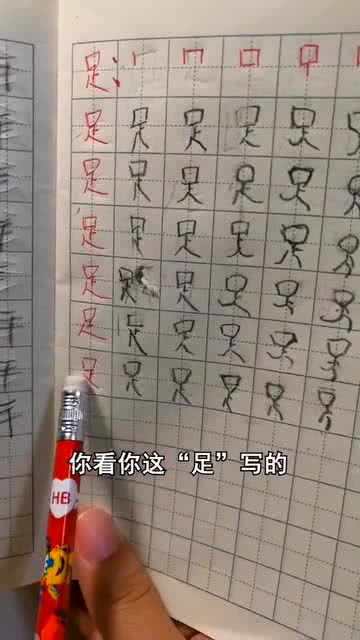 足： 丨 冂 口
足 足 足 足 足 足
足 足 足 足 足 足
足 足 足 足 足 足
足 足 足 足 足 足
足 足 足 足 足 足
足 足 足 足 足 足
你看你这“足”写的
HB